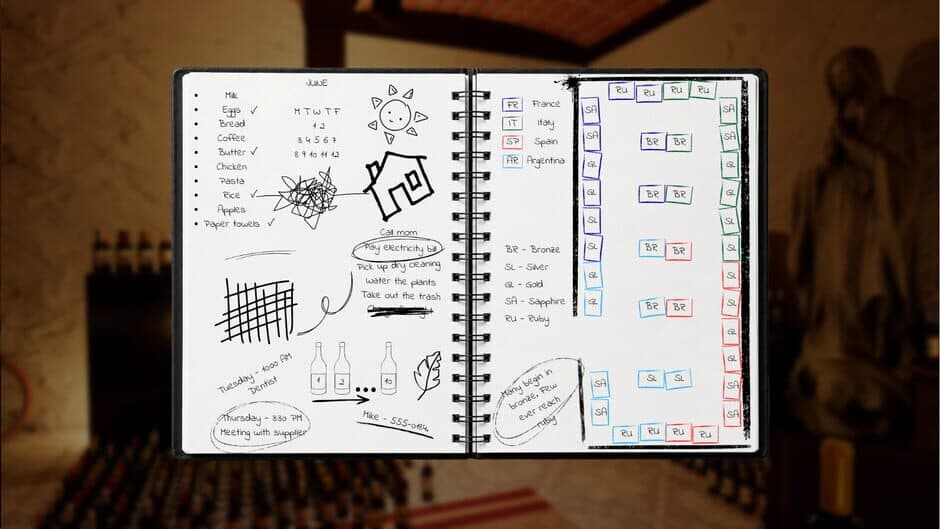 JUNE
Milk
Eggs
Bread
Coffee
Butter
Chicken
Pasta
Rice
Apples
Paper towels
M T W T F
1 2
3 4 5 6 7
8 9 10 11 12
Call mom
Pay electricity bill
Pick up dry cleaning
Water the plants
Take out the trash
Tuesday - 10:00 AM
Dentist
1 2 ... 10
Thursday - 3:30 PM
Meeting with supplier
Mike - 555-0114
FR France
IT Italy
SP Spain
AR Argentina
BR - Bronze
SL - Silver
GL - Gold
SA - Sapphire
RU - Ruby
Many begin in
bronze. Few
ever reach
ruby
RU RU RU RU
SA SA
SA BR BR SA
GL GL
GL BR BR GL
SL SL
SL BR BR SL
GL SL
GL BR BR SL
GL
GL
SA SL SL SA
SA SA
RU RU RU RU